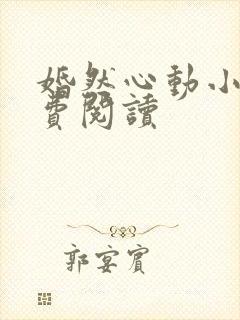 婚然心動小
費閱讀
郭宴賓